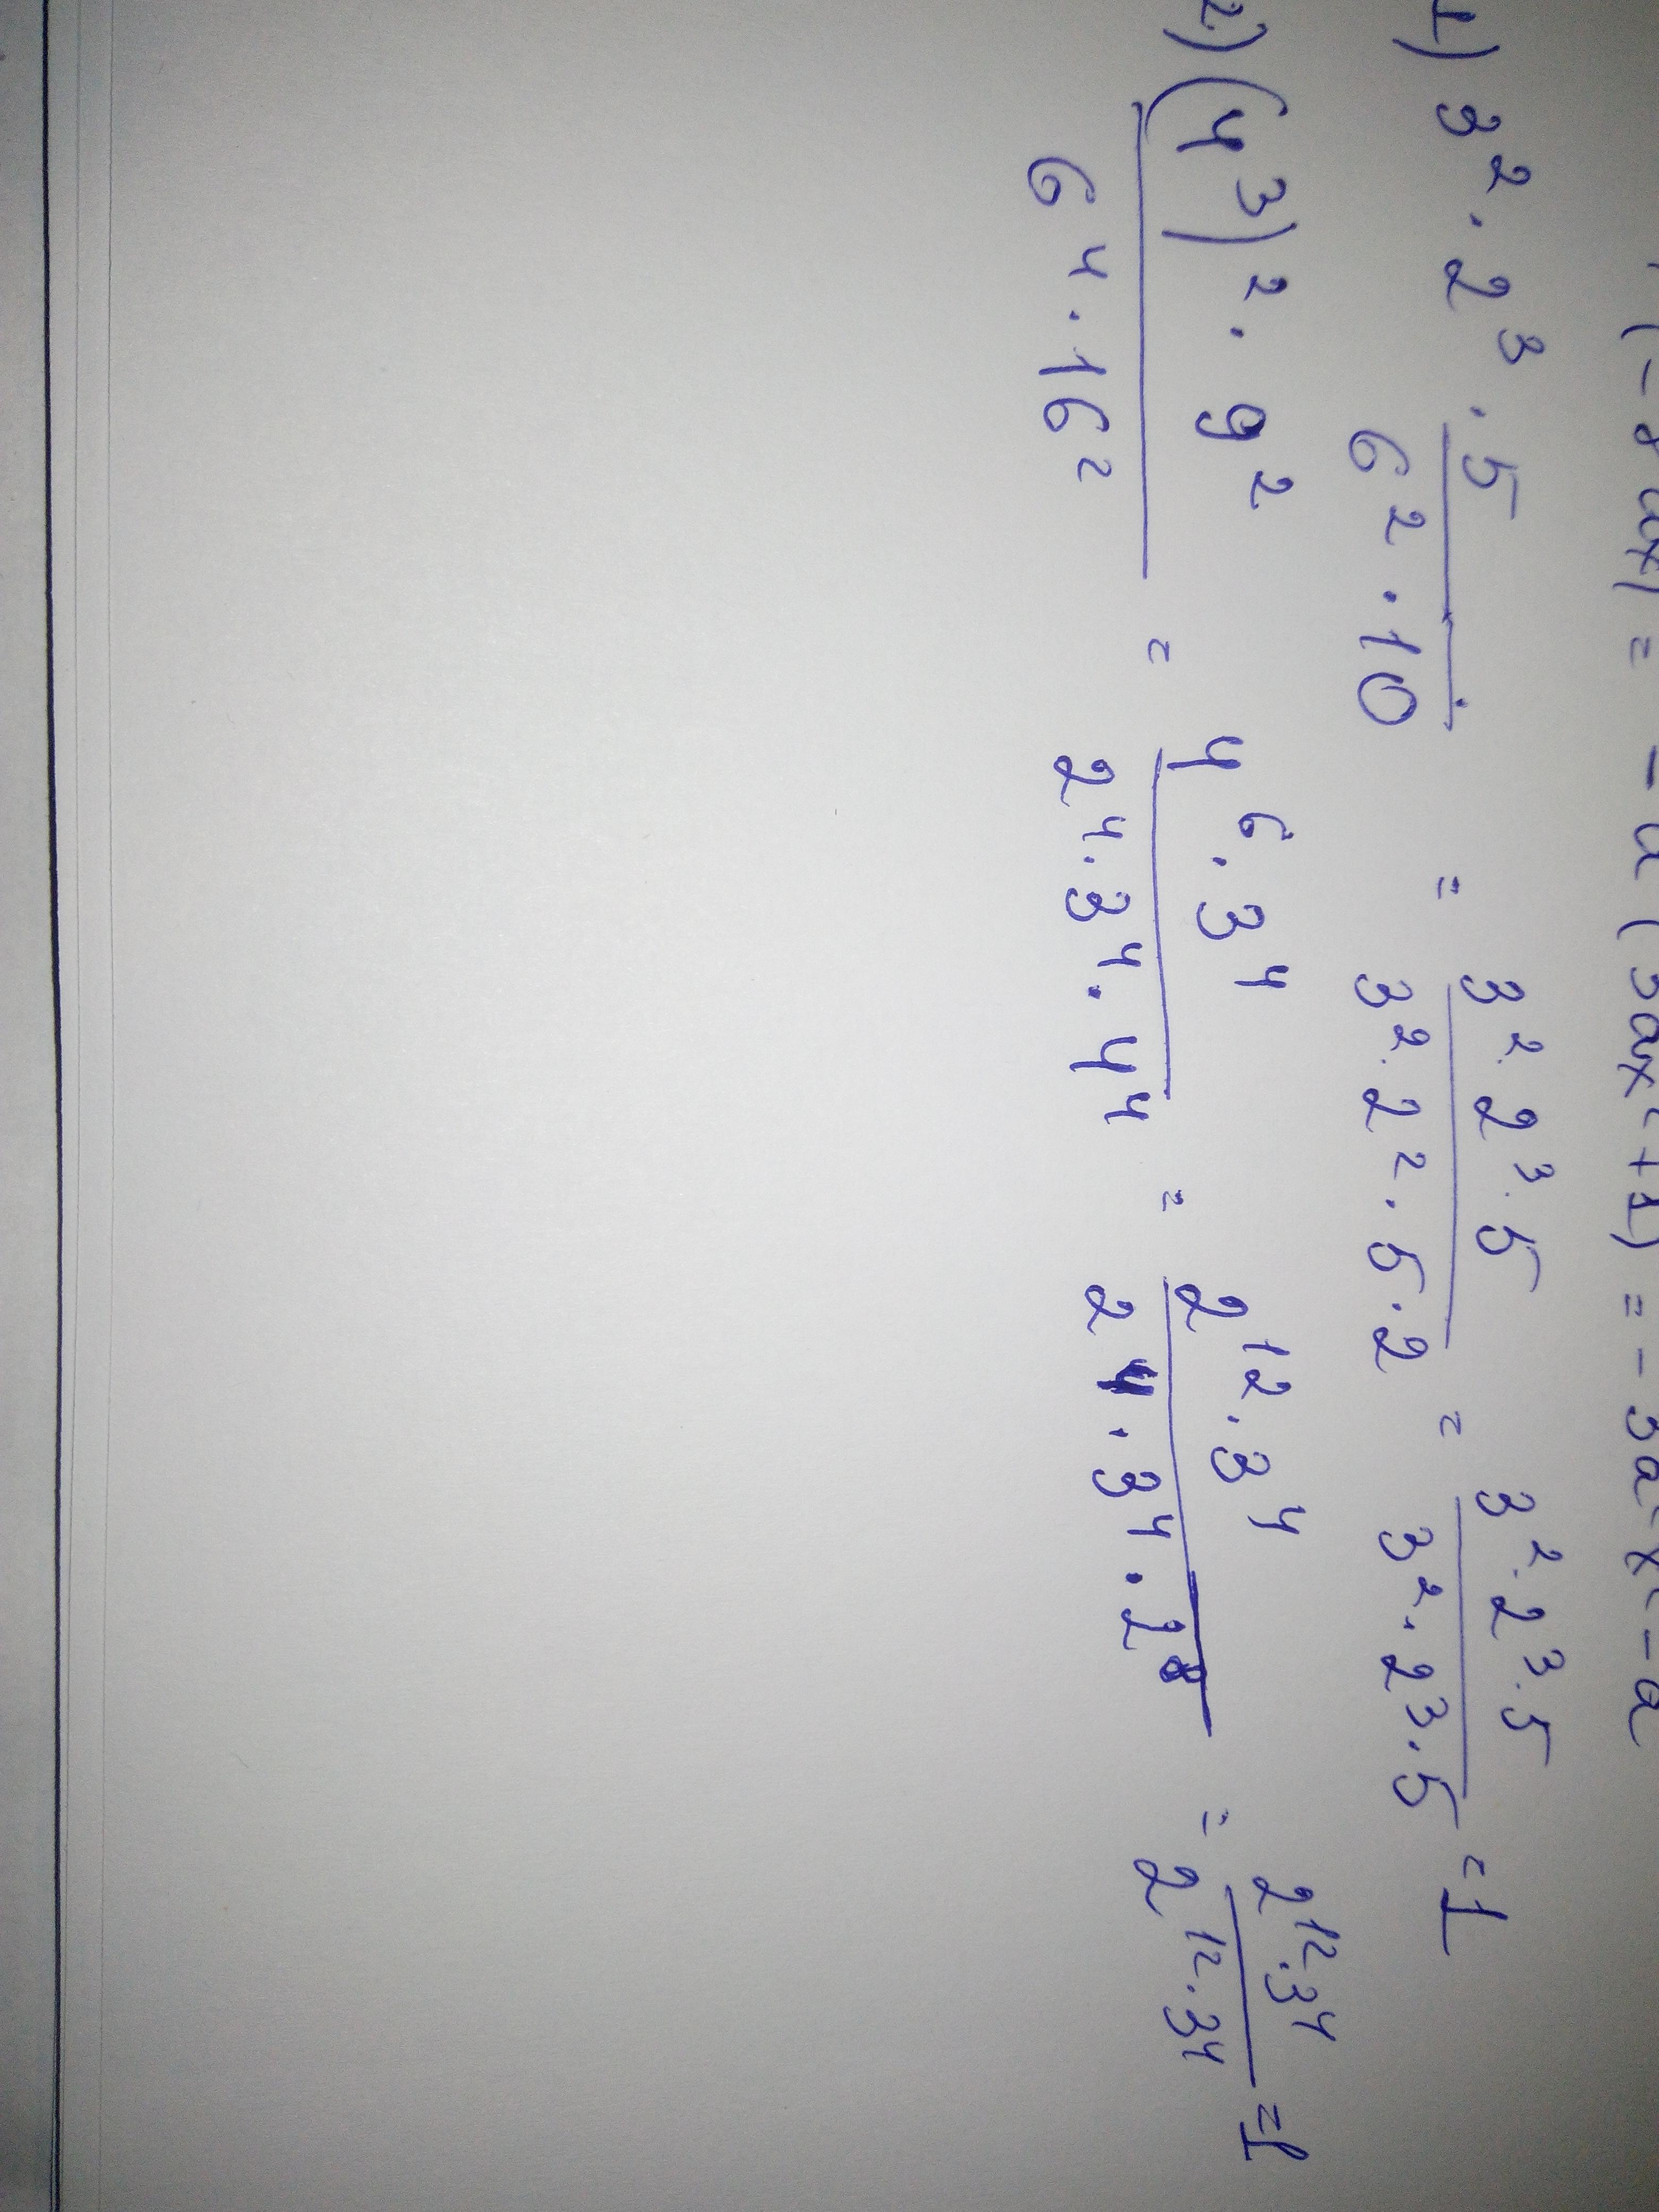 (-8ax) = -a(3ax²+1) = -3a²x²-a
1) 3²·2³·5/6²·10 = 3²·2³·5/3²·2²·5·2 = 3²·2³·5/3²·2³·5 = 1
2) (4³)²·9²/6⁴·16² = 4⁶·3⁴/2⁴·3⁴·4⁴ = 2¹²·3⁴/2⁴·3⁴·2⁸ = 2¹²·3⁴/2¹²·3⁴ = 1